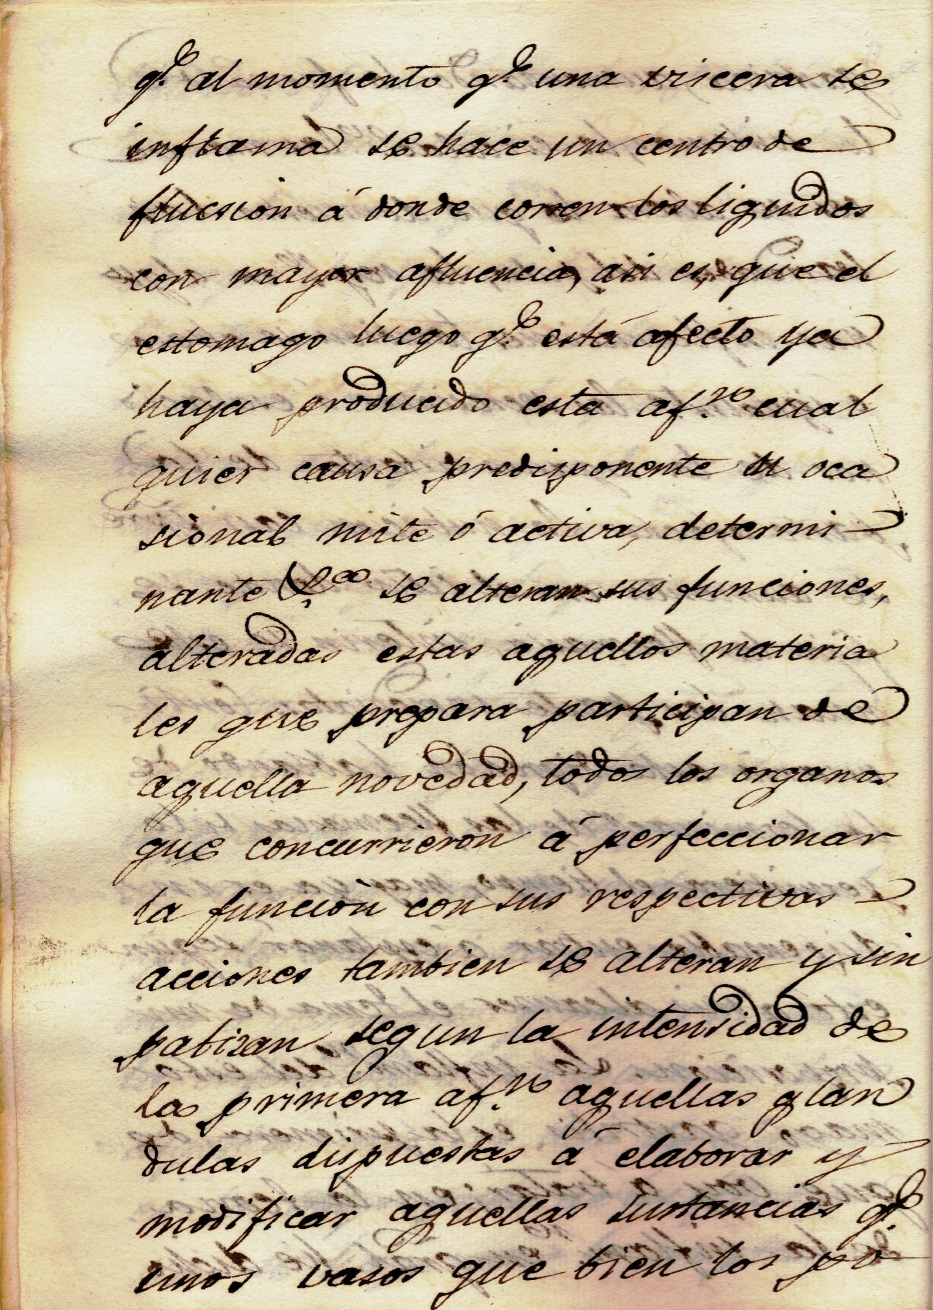 q.e al momento q.e una viscera se
inflama se hace un centro de
fluccion á donde corren los liquidos
con mayor afluencia, asi es, que el
estomago luego q.e está afecto ya
haya producido esta af.n cual
quier causa predisponente u oca
sional mite ó activa, determi-
nante &.a se alteran sus funciones,
alteradas estas aquellos materia
les que prepara participan de
aquella novedad, todos los organos
que concurrieron á perfeccionar
la función con sus respectivas
acciones tambien se alteran y sin
patizan segun la intensidad de
la primera af.n aquellas glan
dulas dispuestas á elaborar y
modificar aquellas sustancias q.e
unos vasos que bien los po